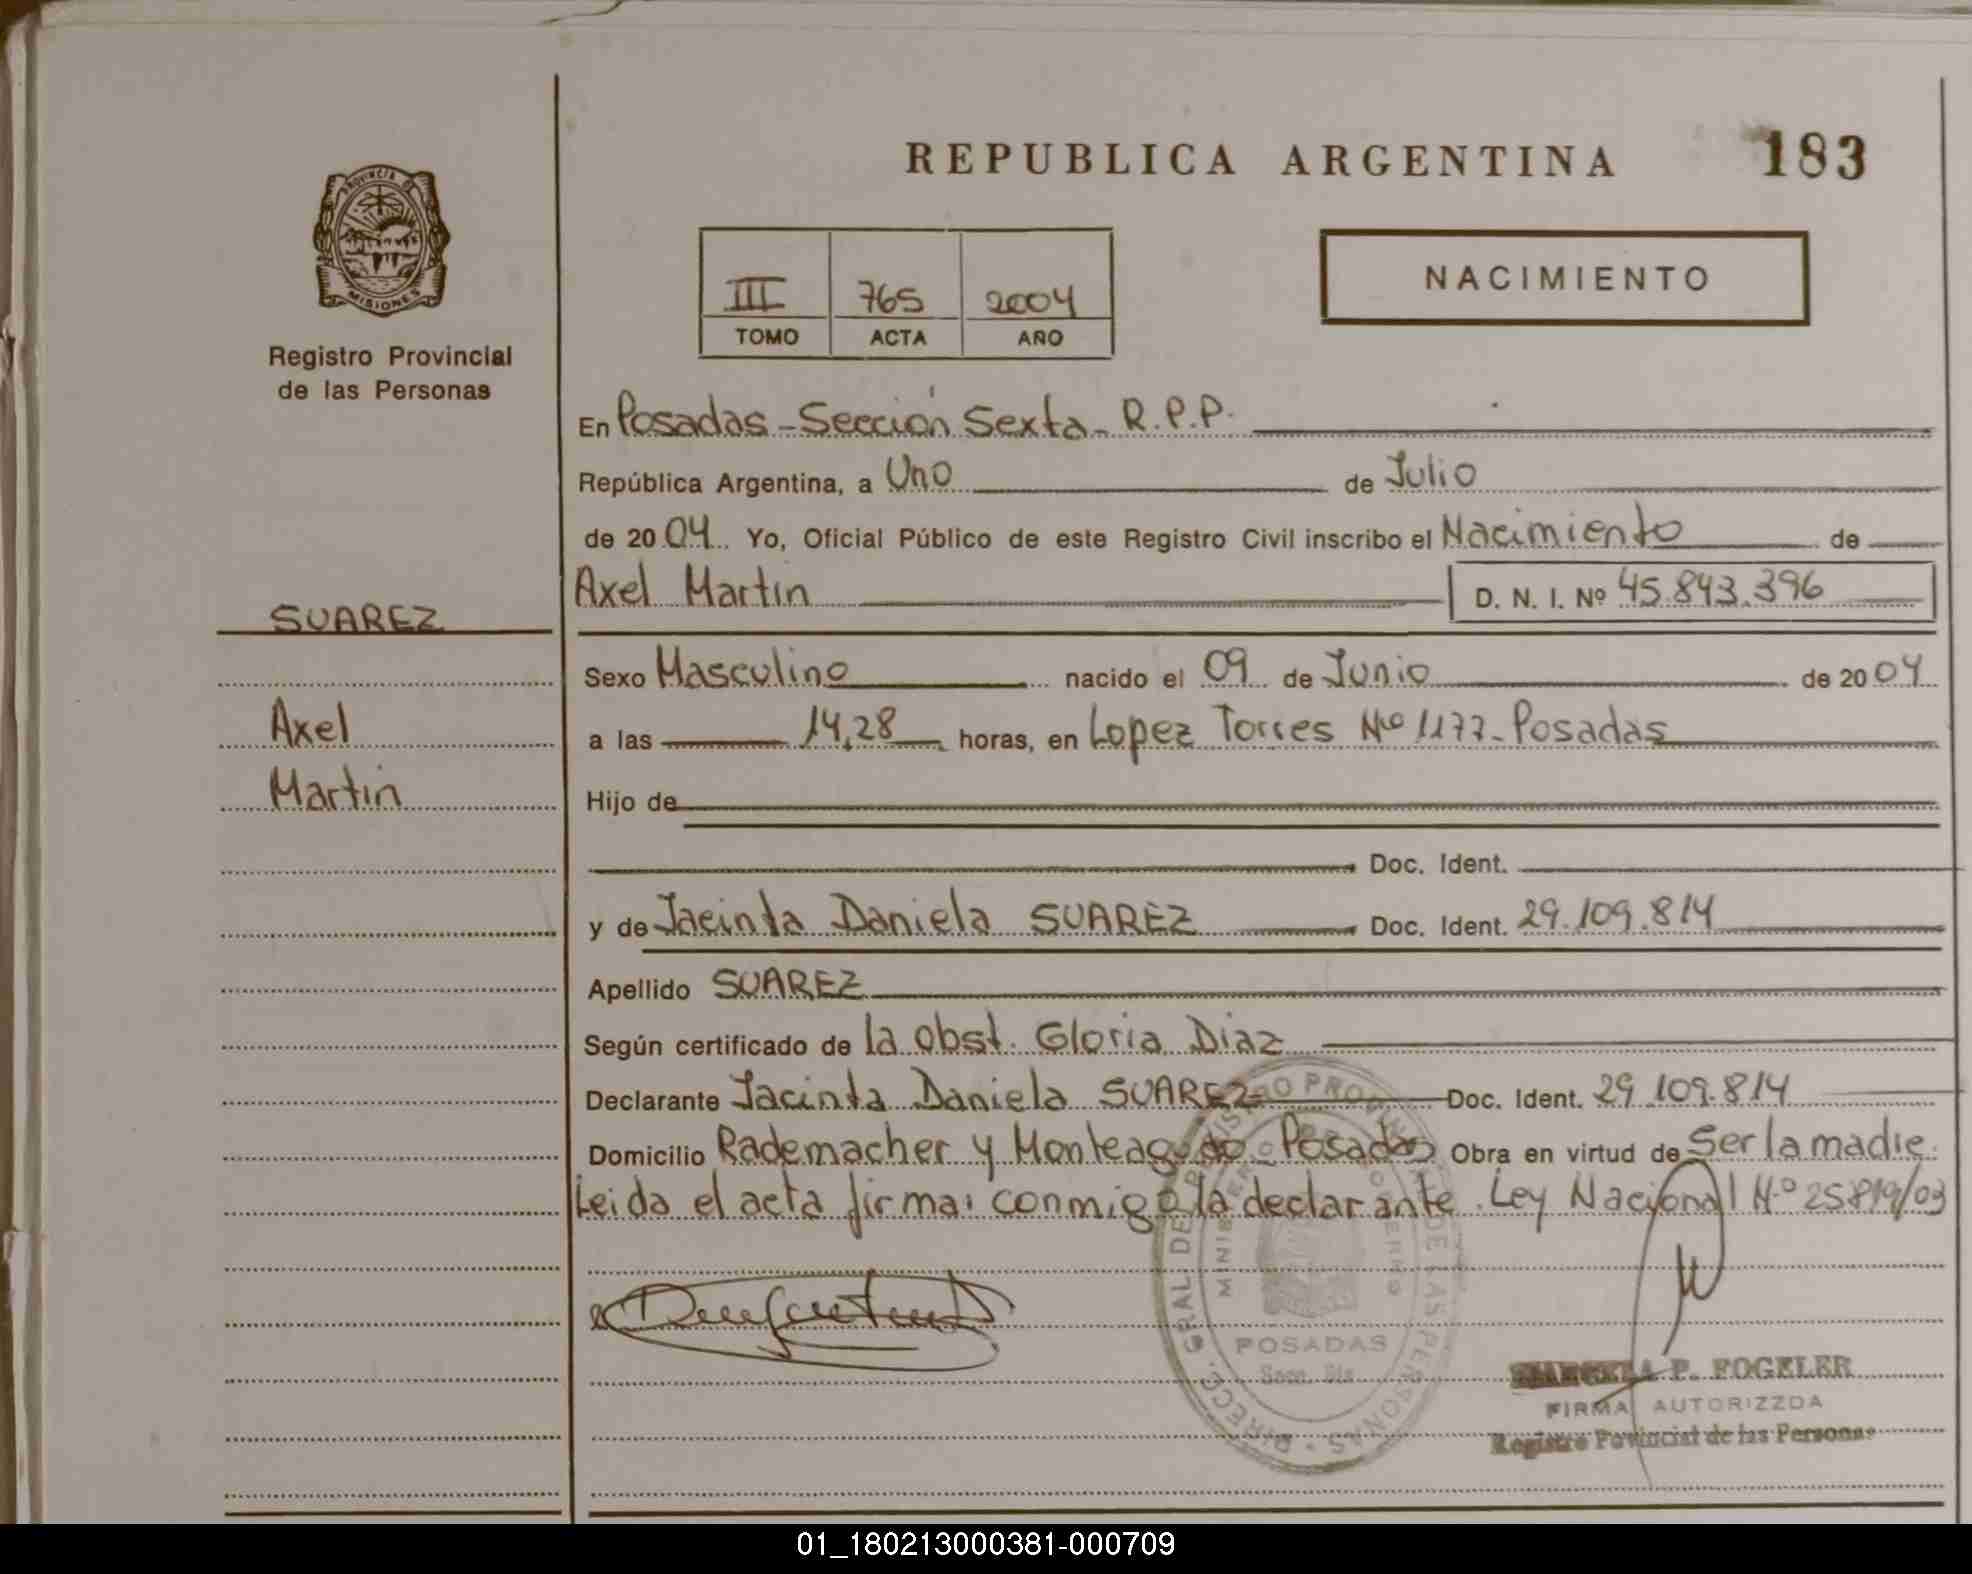 REPUBLICA ARGENTINA 183
PROVINCIA DE
MISIONES
Registro Provincial
de las Personas
III 765 2004
TOMO ACTA AÑO
NACIMIENTO
En Posadas - Sección Sexta - R.P.P.
República Argentina, a Uno de Julio
de 2004 Yo, Oficial Público de este Registro Civil inscribo el Nacimiento de
Axel Martin D. N. I. Nº 45.843.396
SUAREZ
Sexo Masculino nacido el 09 de Junio de 2004
Axel
a las 14,28 horas, en Lopez Torres Nº 1177 - Posadas
Martin
Hijo de
Doc. Ident.
y de Jacinta Daniela SUAREZ Doc. Ident. 29.109.814
Apellido SUAREZ
Según certificado de la obst. Gloria Diaz
Declarante Jacinta Daniela SUAREZ Doc. Ident. 29.109.814
Domicilio Rademacher y Monteagudo - Posadas Obra en virtud de Ser la madre.
Leida el acta firma: conmigo la declarante. Ley Nacional Nº 25819/03
DIRECC. GRAL DE REGISTRO PROVINCIAL DE LAS PERSONAS
MINISTERIO DE GOBIERNO
POSADAS
P. FOGELER
FIRMA AUTORIZZDA
Registro Povincial de las Personas
01_180213000381-000709